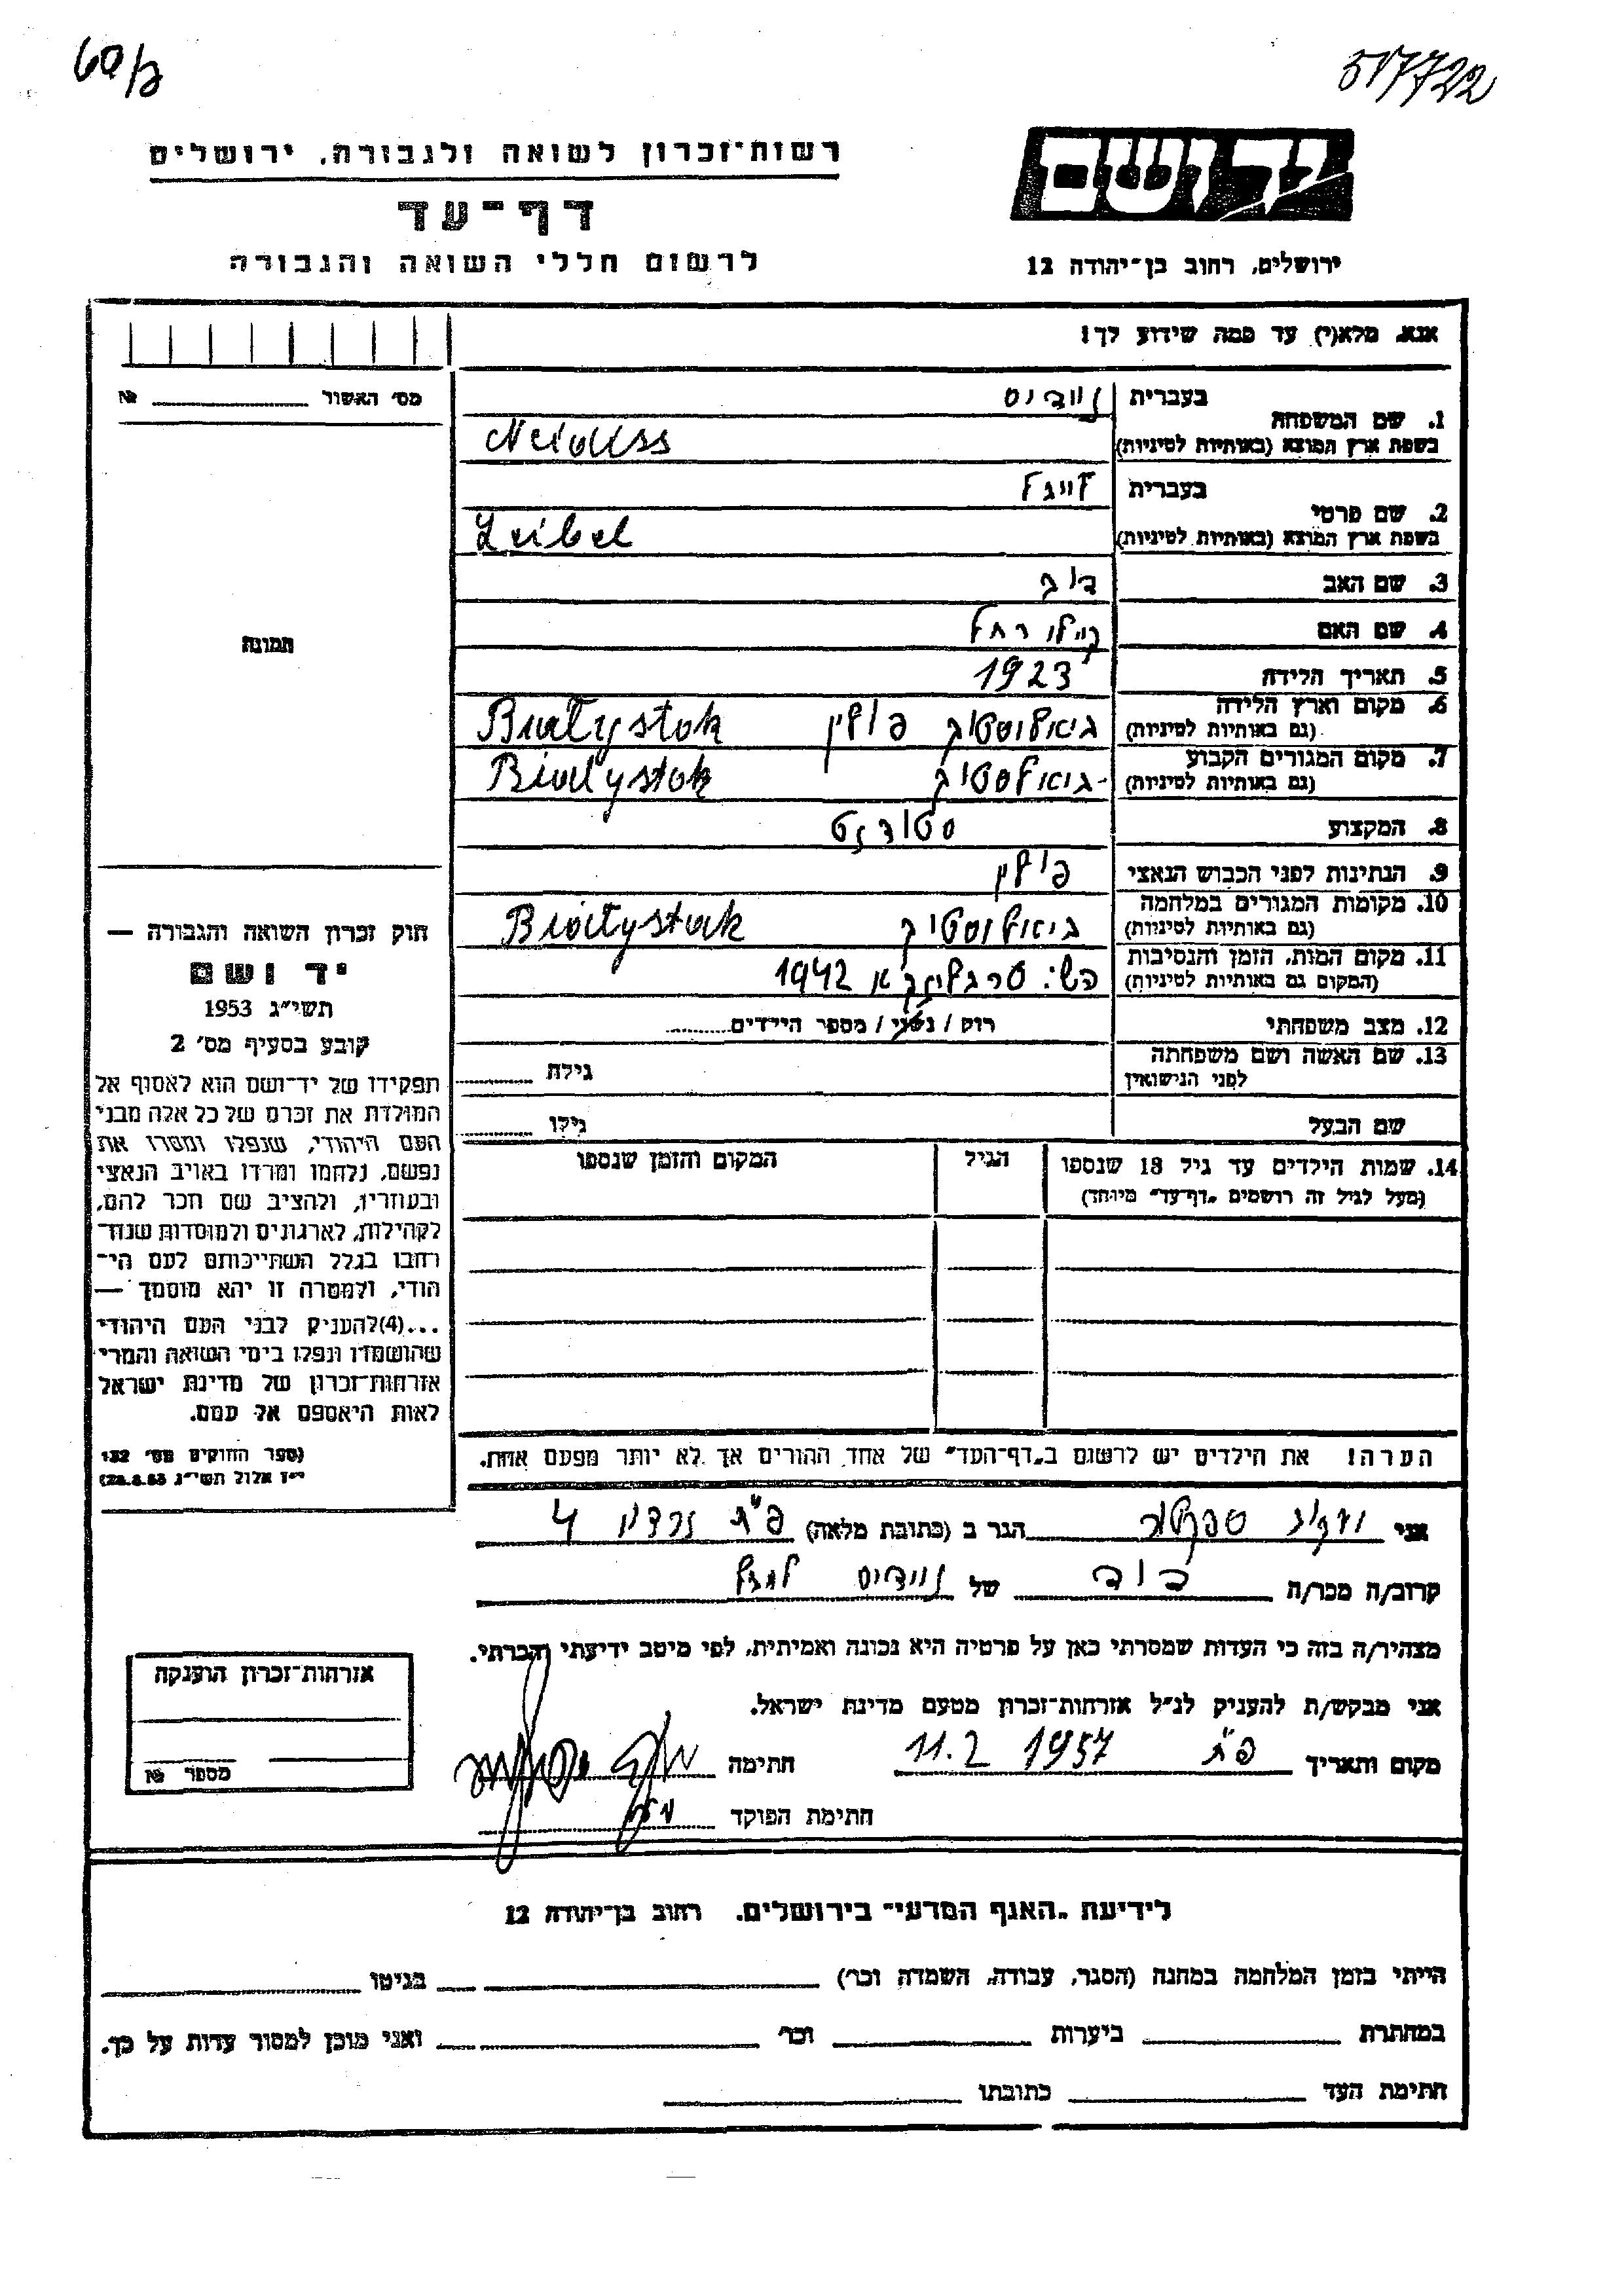 517722
רשות־זכרון לשואה ולגבורה, ירושלים
דף־עד
לרשום חללי השואה והגבורה
יד ושם
ירושלים, רחוב בן־יהודה 12
אנא, מלא(י) עד כמה שידוע לך!
מס׳ האשור №
1. שם המשפחה
בעברית
בשפת ארץ המוצא (באותיות לטיניות)
Neiduss
2. שם פרטי
בעברית לייבל
בשפת ארץ המוצא (באותיות לטיניות)
Leibel
3. שם האב דוב
4. שם האם רחל
5. תאריך הלידה 1923
6. מקום וארץ הלידה
(גם באותיות לטיניות) ביאליסטוק פולין Białystok
7. מקום המגורים הקבוע
(גם באותיות לטיניות) ביאליסטוק Białystok
8. המקצוע סטודנט
9. הנתינות לפני הכבוש הנאצי פולין
10. מקומות המגורים במלחמה
(גם באותיות לטיניות) ביאליסטוק Białystok
11. מקום המות, הזמן והנסיבות
(המקום גם באותיות לטיניות) טרבלינקא 1942
12. מצב משפחתי רוק / נשוי / מספר הילדים
13. שם האשה ושם משפחתה
לפני הנישואין גילה
שם הבעל גילו
14. שמות הילדים עד גיל 18 שנספו
(מעל לגיל זה רושמים „דף־עד״ מיוחד)
הגיל
המקום והזמן שנספו
הערה! את הילדים יש לרשום ב„דף־העד״ של אחד ההורים אך לא יותר מפעם אחת.
תמונה
חוק זכרון השואה והגבורה —
יד ושם
תשי״ג 1953
קובע בסעיף מס׳ 2
תפקידו של יד־ושם הוא לאסוף אל
המולדת את זכרם של כל אלה מבני
העם היהודי, שנפלו ומסרו את
נפשם, נלחמו ומרדו באויב הנאצי
ובעוזריו, ולהציב שם וזכר להם,
לקהילות, לארגונים ולמוסדות שנח־
רבו בגלל השתייכותם לעם הי־
הודי, ולמטרה זו יהא מוסמך —
...(4)להעניק לבני העם היהודי
שהושמדו ונפלו בימי השואה והמרי
אזרחות־זכרון של מדינת ישראל
לאות היאספם אל עמם.
(ספר החוקים מס׳ 132
י״ז אלול תשי״ג 28.8.53)
אני הגר ב (כתובת מלאה) פ״ת 4
קרוב/ה מכר/ה דוד של
מצהיר/ה בזה כי העדות שמסרתי כאן על פרטיה היא נכונה ואמיתית, לפי מיטב ידיעתי והכרתי.
אני מבקש/ת להעניק לנ״ל אזרחות־זכרון מטעם מדינת ישראל.
מקום ותאריך פ״ת 11.2 1957 חתימה
חתימת הפוקד
אזרחות־זכרון הוענקה
מספר №
לידיעת „האגף המדעי״ בירושלים, רחוב בן־יהודה 12
הייתי בזמן המלחמה במחנה (הסגר, עבודה, השמדה וכו׳) בגיטו
במחתרת ביערות וכו׳ ואני מוכן למסור עדות על כך.
חתימת העד כתובתו